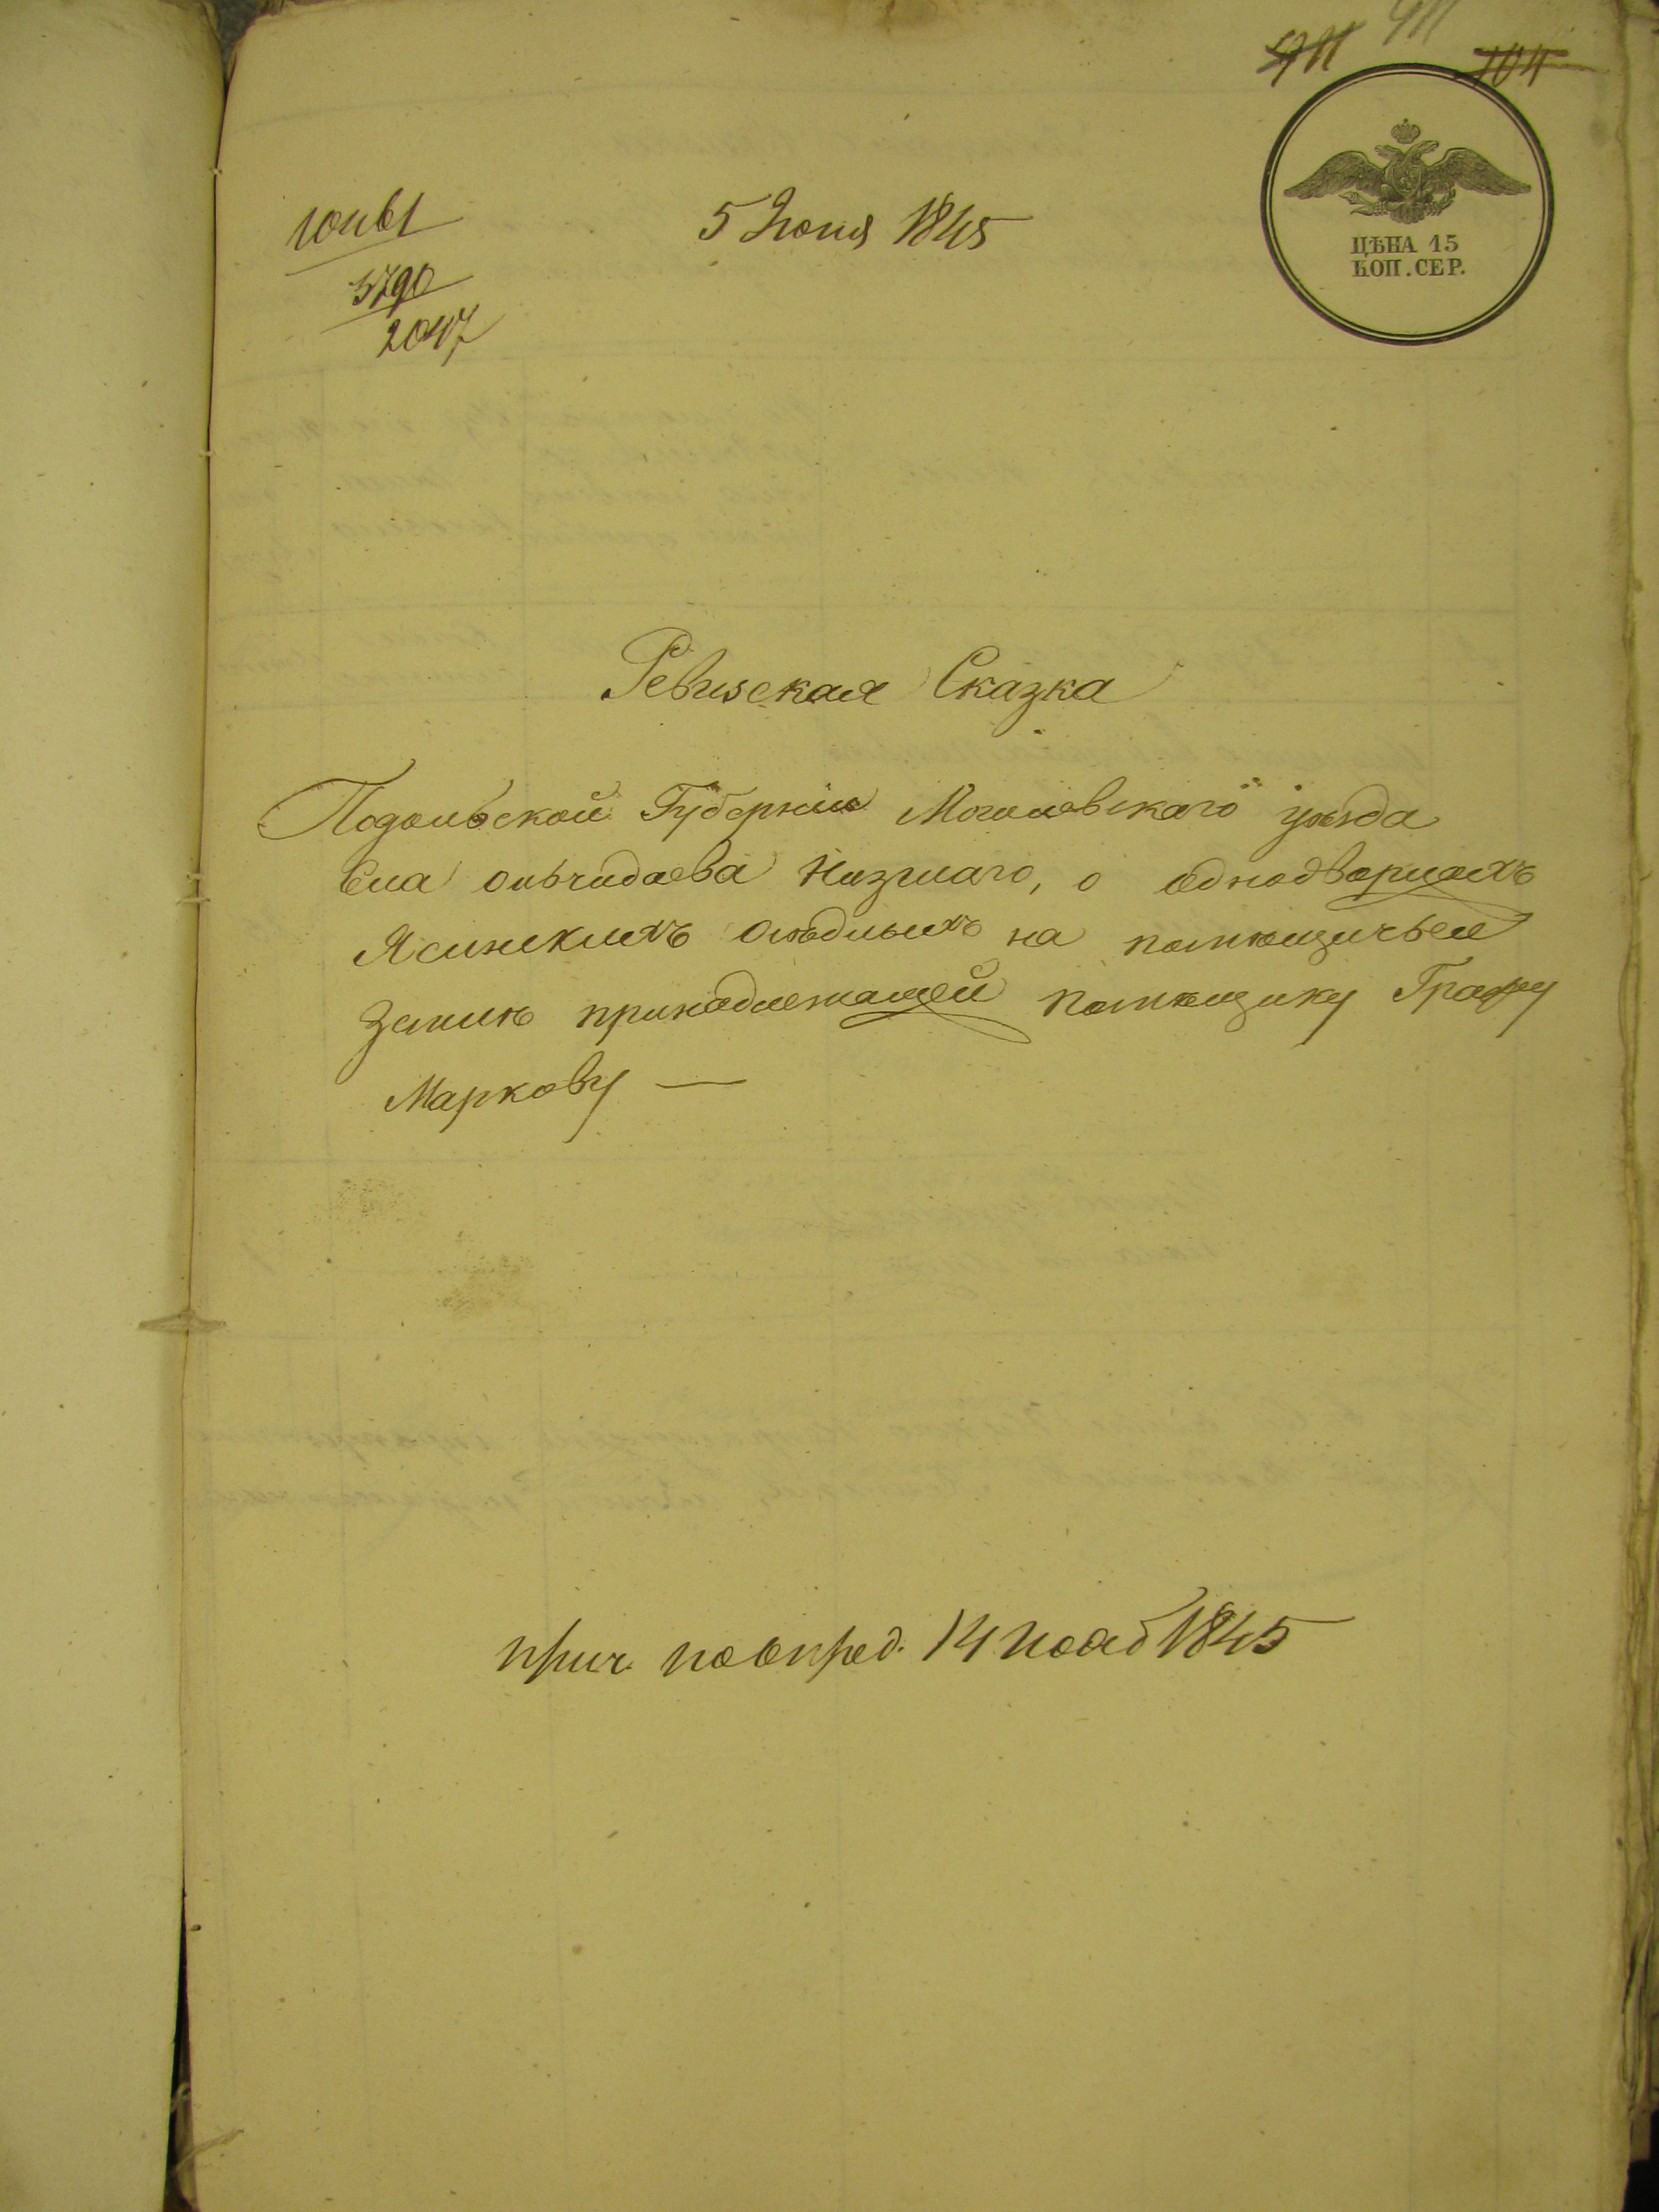 5 Июня 1845
5790
2047
ЦѢНА 15
КОП. СЕР.
Ревизская Сказка
Подольской Губерніи Могилевскаго уѣзда
Села Ольчидаева Нижнаго, о однодворцахъ
Ясинскихъ осѣдлыхъ на помѣщичьей
землѣ принадлежащей помѣщику Графу
Маркову —
прич. по опред. 14 нояб 1845